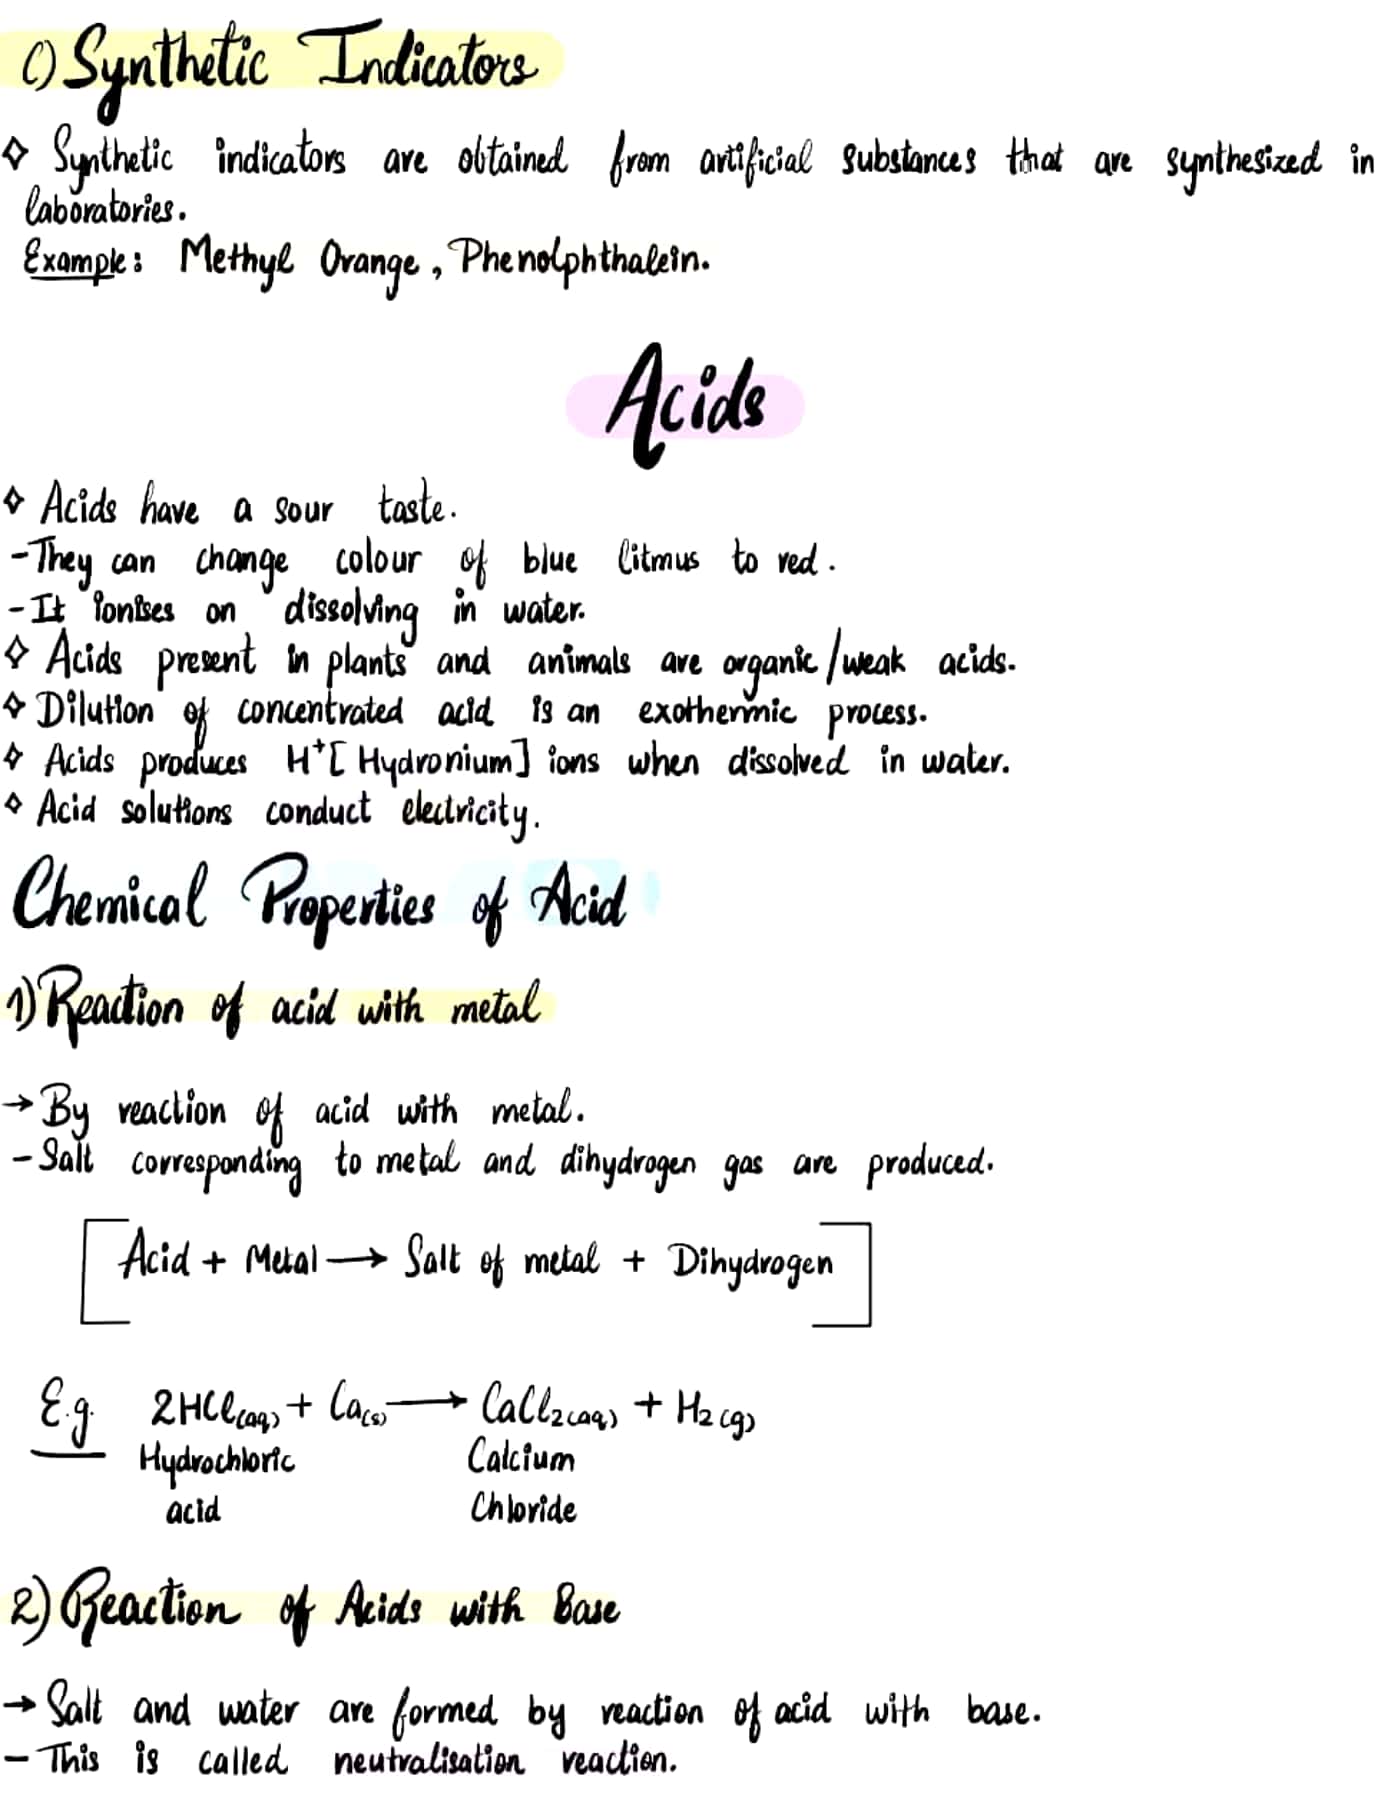 C) Synthetic Indicators
❖ Synthetic indicators are obtained from artificial substances that are synthesized in
laboratories.
Example: Methyl Orange, Phenolphthalein.
Acids
❖ Acids have a sour taste.
- They can change colour of blue litmus to red.
- It ionises on dissolving in water.
❖ Acids present in plants and animals are organic/weak acids.
❖ Dilution of concentrated acid is an exothermic process.
❖ Acids produces H⁺[Hydronium] ions when dissolved in water.
❖ Acid solutions conduct electricity.
Chemical Properties of Acid
1) Reaction of acid with metal
→ By reaction of acid with metal.
- Salt corresponding to metal and dihydrogen gas are produced.
[Acid + Metal → Salt of metal + Dihydrogen]
E.g. 2HCl(aq) + Ca(s) → CaCl₂(aq) + H₂(g)
Hydrochloric Calcium
acid Chloride
2) Reaction of Acids with Base
→ Salt and water are formed by reaction of acid with base.
- This is called neutralisation reaction.